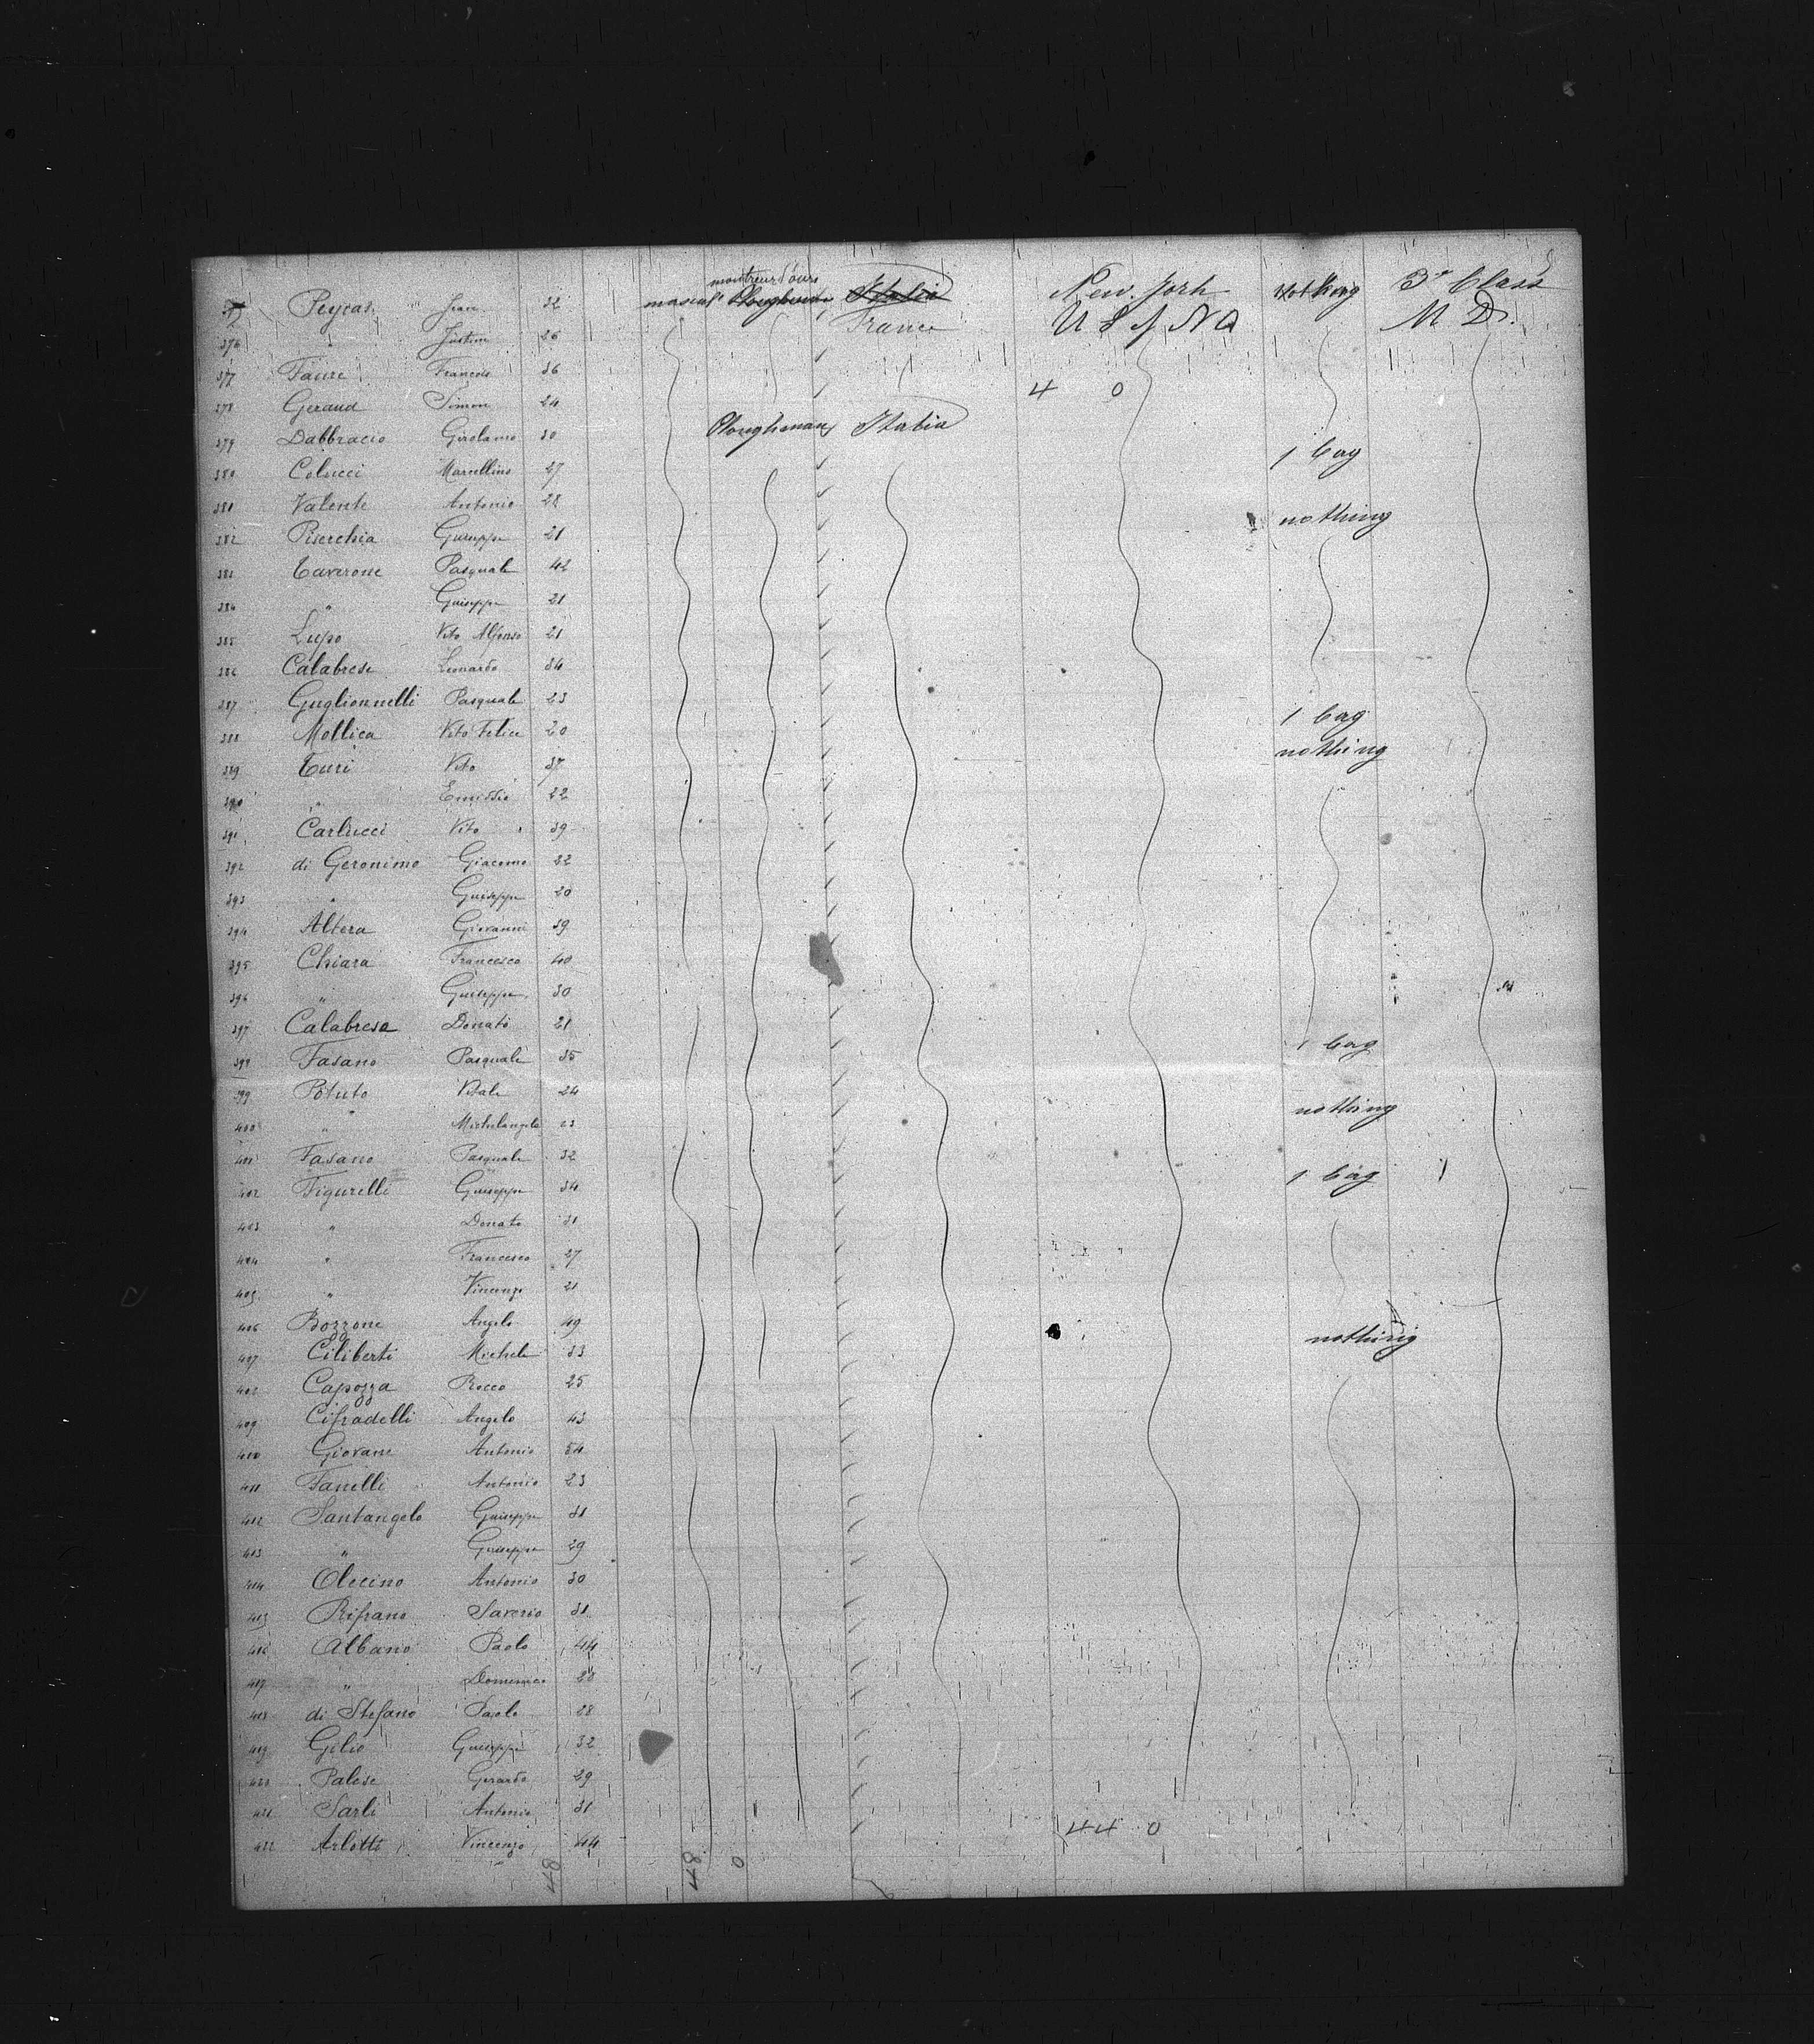 Peycas Jean 32 mascul Ploughman montreur d'ours Italia New-York nothing 3e Class
376 " Justin 26 France U S A N Q M D.
377 Faure François 36
378 Geraud Simon 24 4 0
379 Dabbracio Girolamo 30 Ploughman Italia
380 Colucci Marcellino 27 1 bag
381 Valente Antonio 28
382 Piserchia Guiseppe 21 nothing
383 Caverone Pasquale 42
384 " Guiseppe 21
385 Lupo Vito Alfonso 21
386 Calabrese Leonardo 34
387 Guglionnelli Pasquale 23 1 bag
388 Mollica Vito Felice 20 nothing
389 Turi Vito 37
390 " Emiddio 22
391 Carlucci Vito 39
392 di Geronimo Giacomo 32
393 " Guiseppe 20
394 Altera Giovanni 39
395 Chiara Francesco 40
396 " Guiseppe 30
397 Calabresa Donato 21
398 Fasano Pasquale 35 1 bag
399 Potuto Vitale 24
400 " Michelangelo 23 nothing
401 Fasano Pasquale 32
402 Figurelli Guiseppe 34 1 bag 1
403 " Donato 31
404 " Francesco 27
405 " Vincenzo 21
406 Bozzone Angelo 49
407 Ciliberti Michele 33 nothing
408 Capozza Rocco 25
409 Cifradelli Angelo 43
410 Giovane Antonio 34
411 Fanelli Antonio 23
412 Santangelo Guiseppe 31
413 " Guiseppe 29
414 Olecino Antonio 30
415 Rifrano Saverio 31
416 Albano Paolo 44
417 " Domenico 28
418 di Stefano Paolo 28
419 Gilio Guiseppe 32
420 Palese Gerardo 29
421 Sarli Antonio 31
422 Arlotti Vincenzo 44 44 0
48 48 0